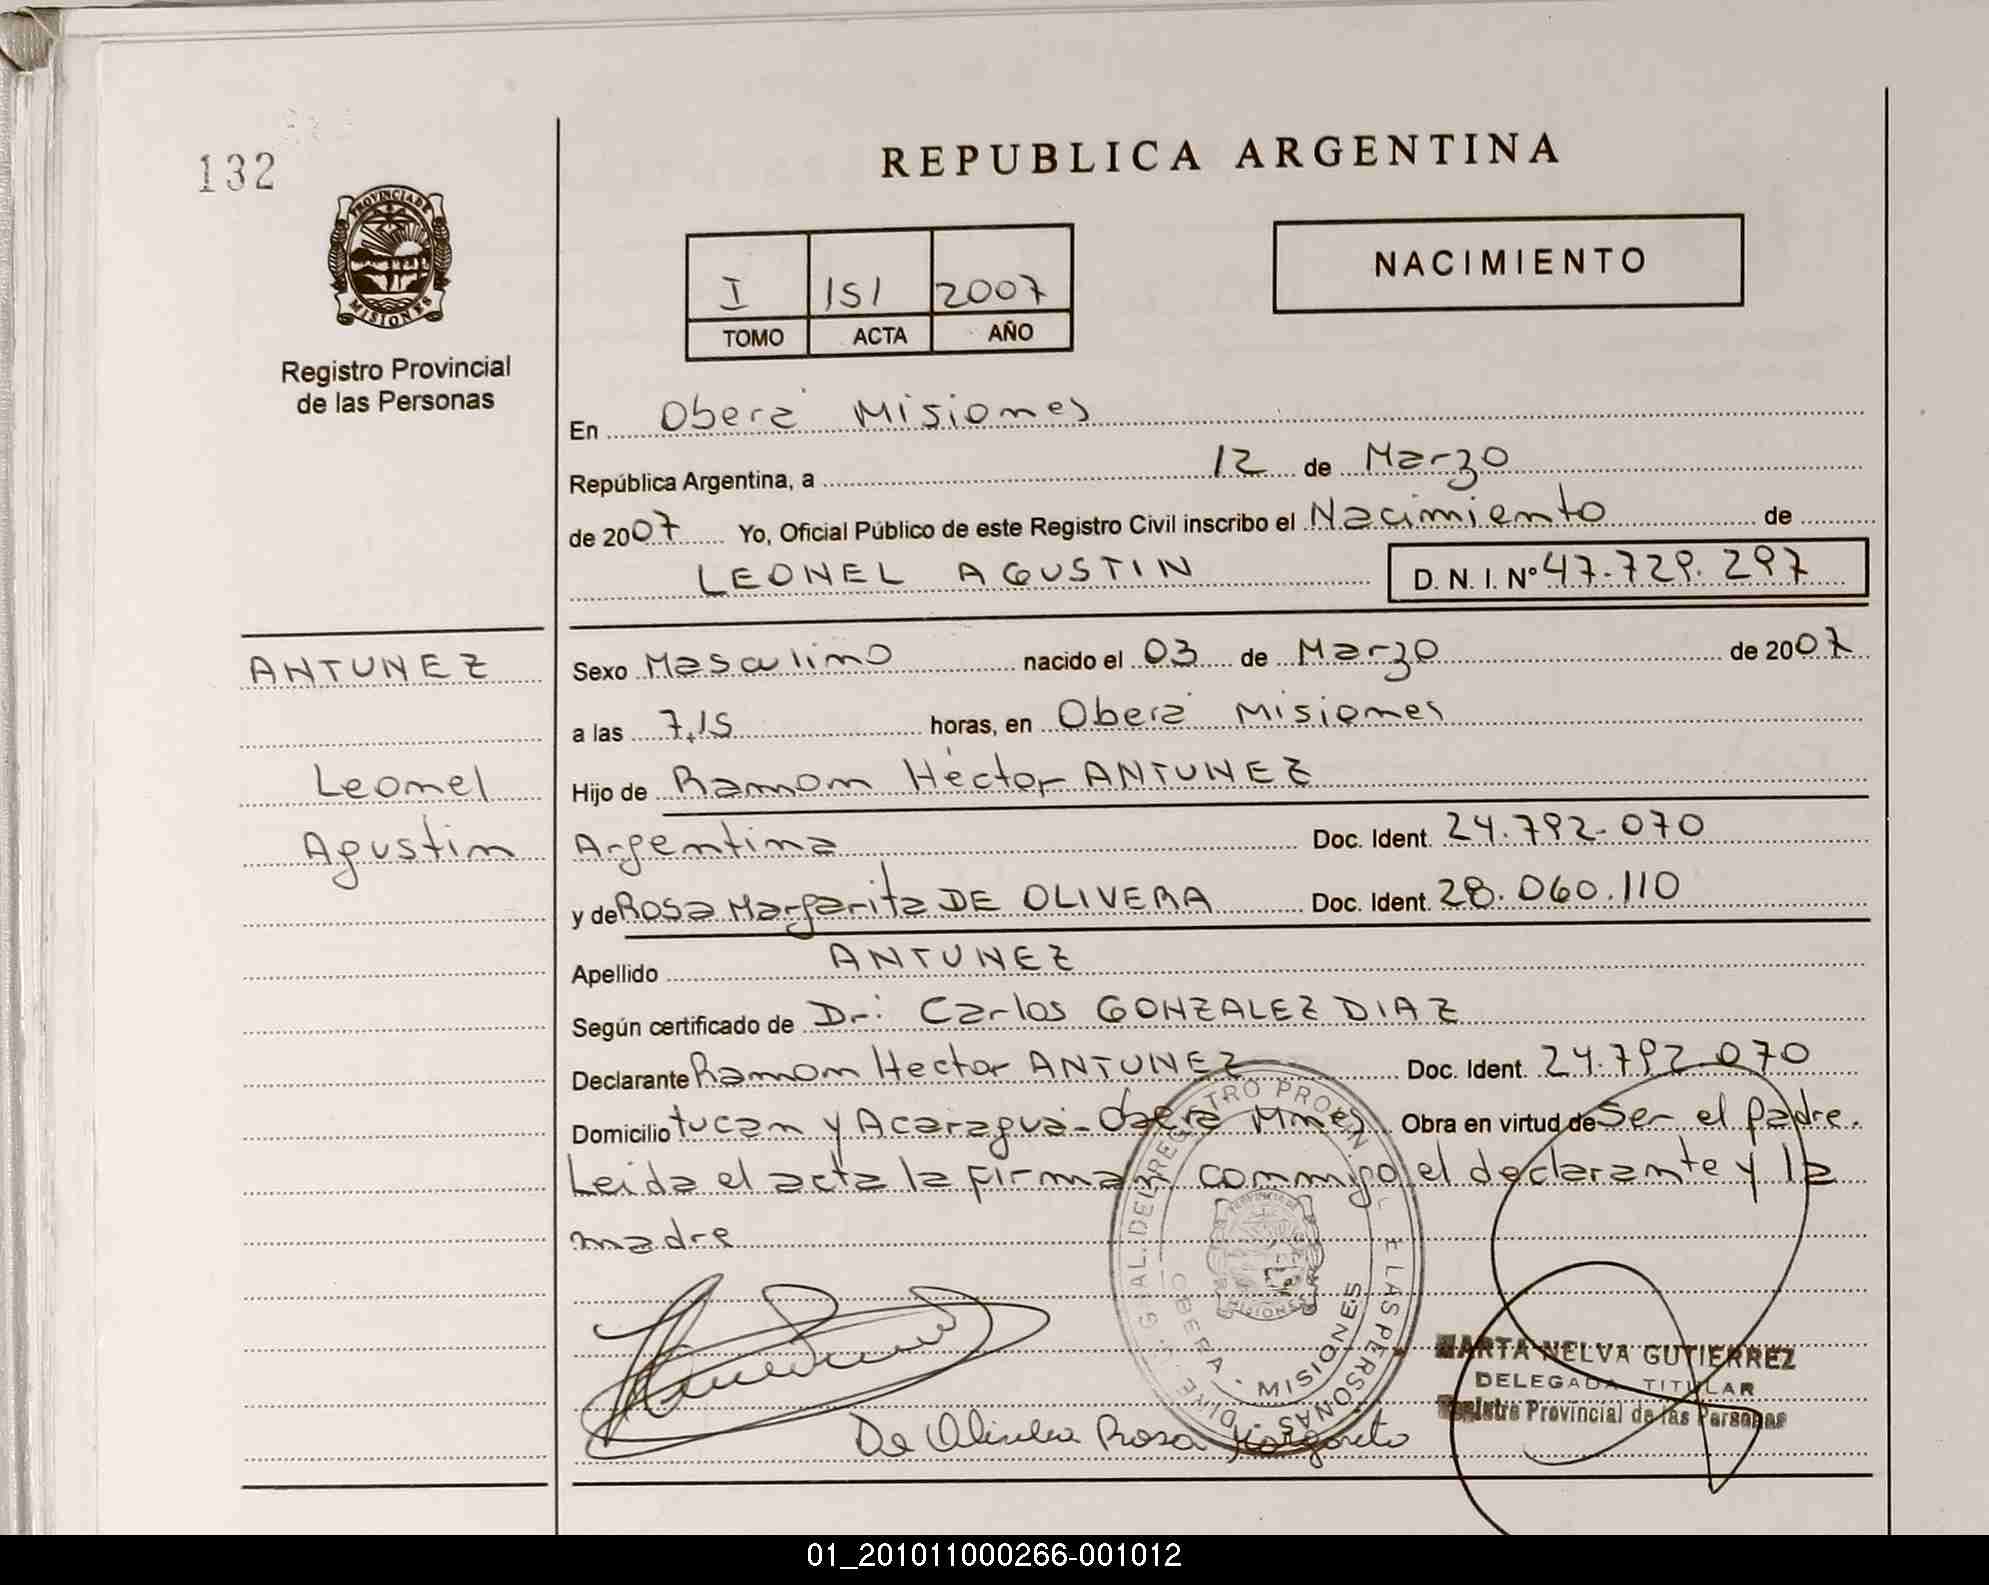 132
PROVINCIA DE
MISIONES
Registro Provincial
de las Personas
REPUBLICA ARGENTINA
I 151 2007
TOMO ACTA AÑO
NACIMIENTO
En Oberá Misiones
República Argentina, a 12 de Marzo
de 2007 Yo, Oficial Público de este Registro Civil inscribo el Nacimiento de
LEONEL AGUSTIN D. N. I. Nº 47.729.297
ANTUNEZ
Leonel
Agustin
Sexo Masculino nacido el 03 de Marzo de 2007
a las 7,15 horas, en Oberá Misiones
Hijo de Ramon Héctor ANTUNEZ
Argentina Doc. Ident. 24.792.070
y de Rosa Margarita DE OLIVERA Doc. Ident. 28.060.110
Apellido ANTUNEZ
Según certificado de Dr: Carlos GONZALEZ DIAZ
Declarante Ramon Hector ANTUNEZ Doc. Ident. 24.792.070
Domicilio tucan y Acaragua - Oberá Mnes Obra en virtud de Ser el padre.
Leida el acta la firman conmigo el declarante y la
madre
MISIONES
OBERA - MISIONES
De Olivera Rosa Margarita
MARTA NELVA GUTIERREZ
DELEGADA TITULAR
Registro Provincial de las Personas
01_201011000266-001012